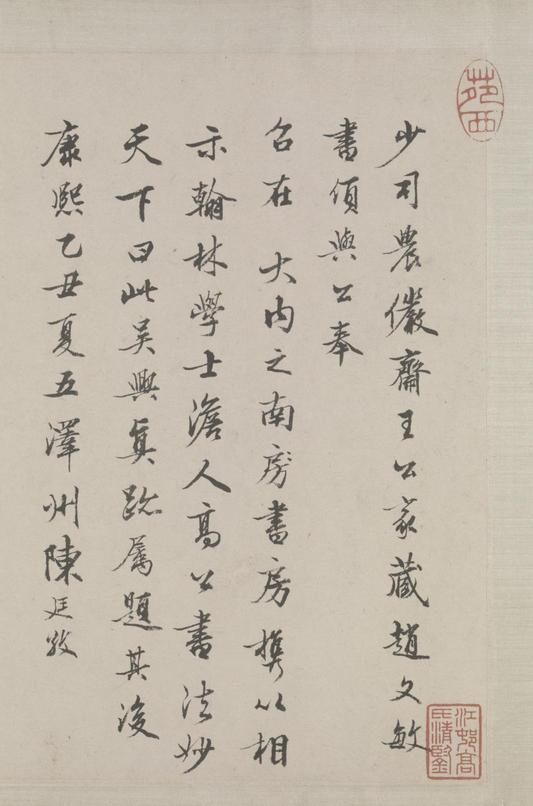 少司農儼齋王公家藏趙文敏
書傾與公奉
召在 大内之南房書房攜以相
示翰林學士澹人高公書法妙
天下曰此吳興真跡屬題其後
康熙乙丑夏五澤州陳廷敬
苑西
江邨高氏清賢